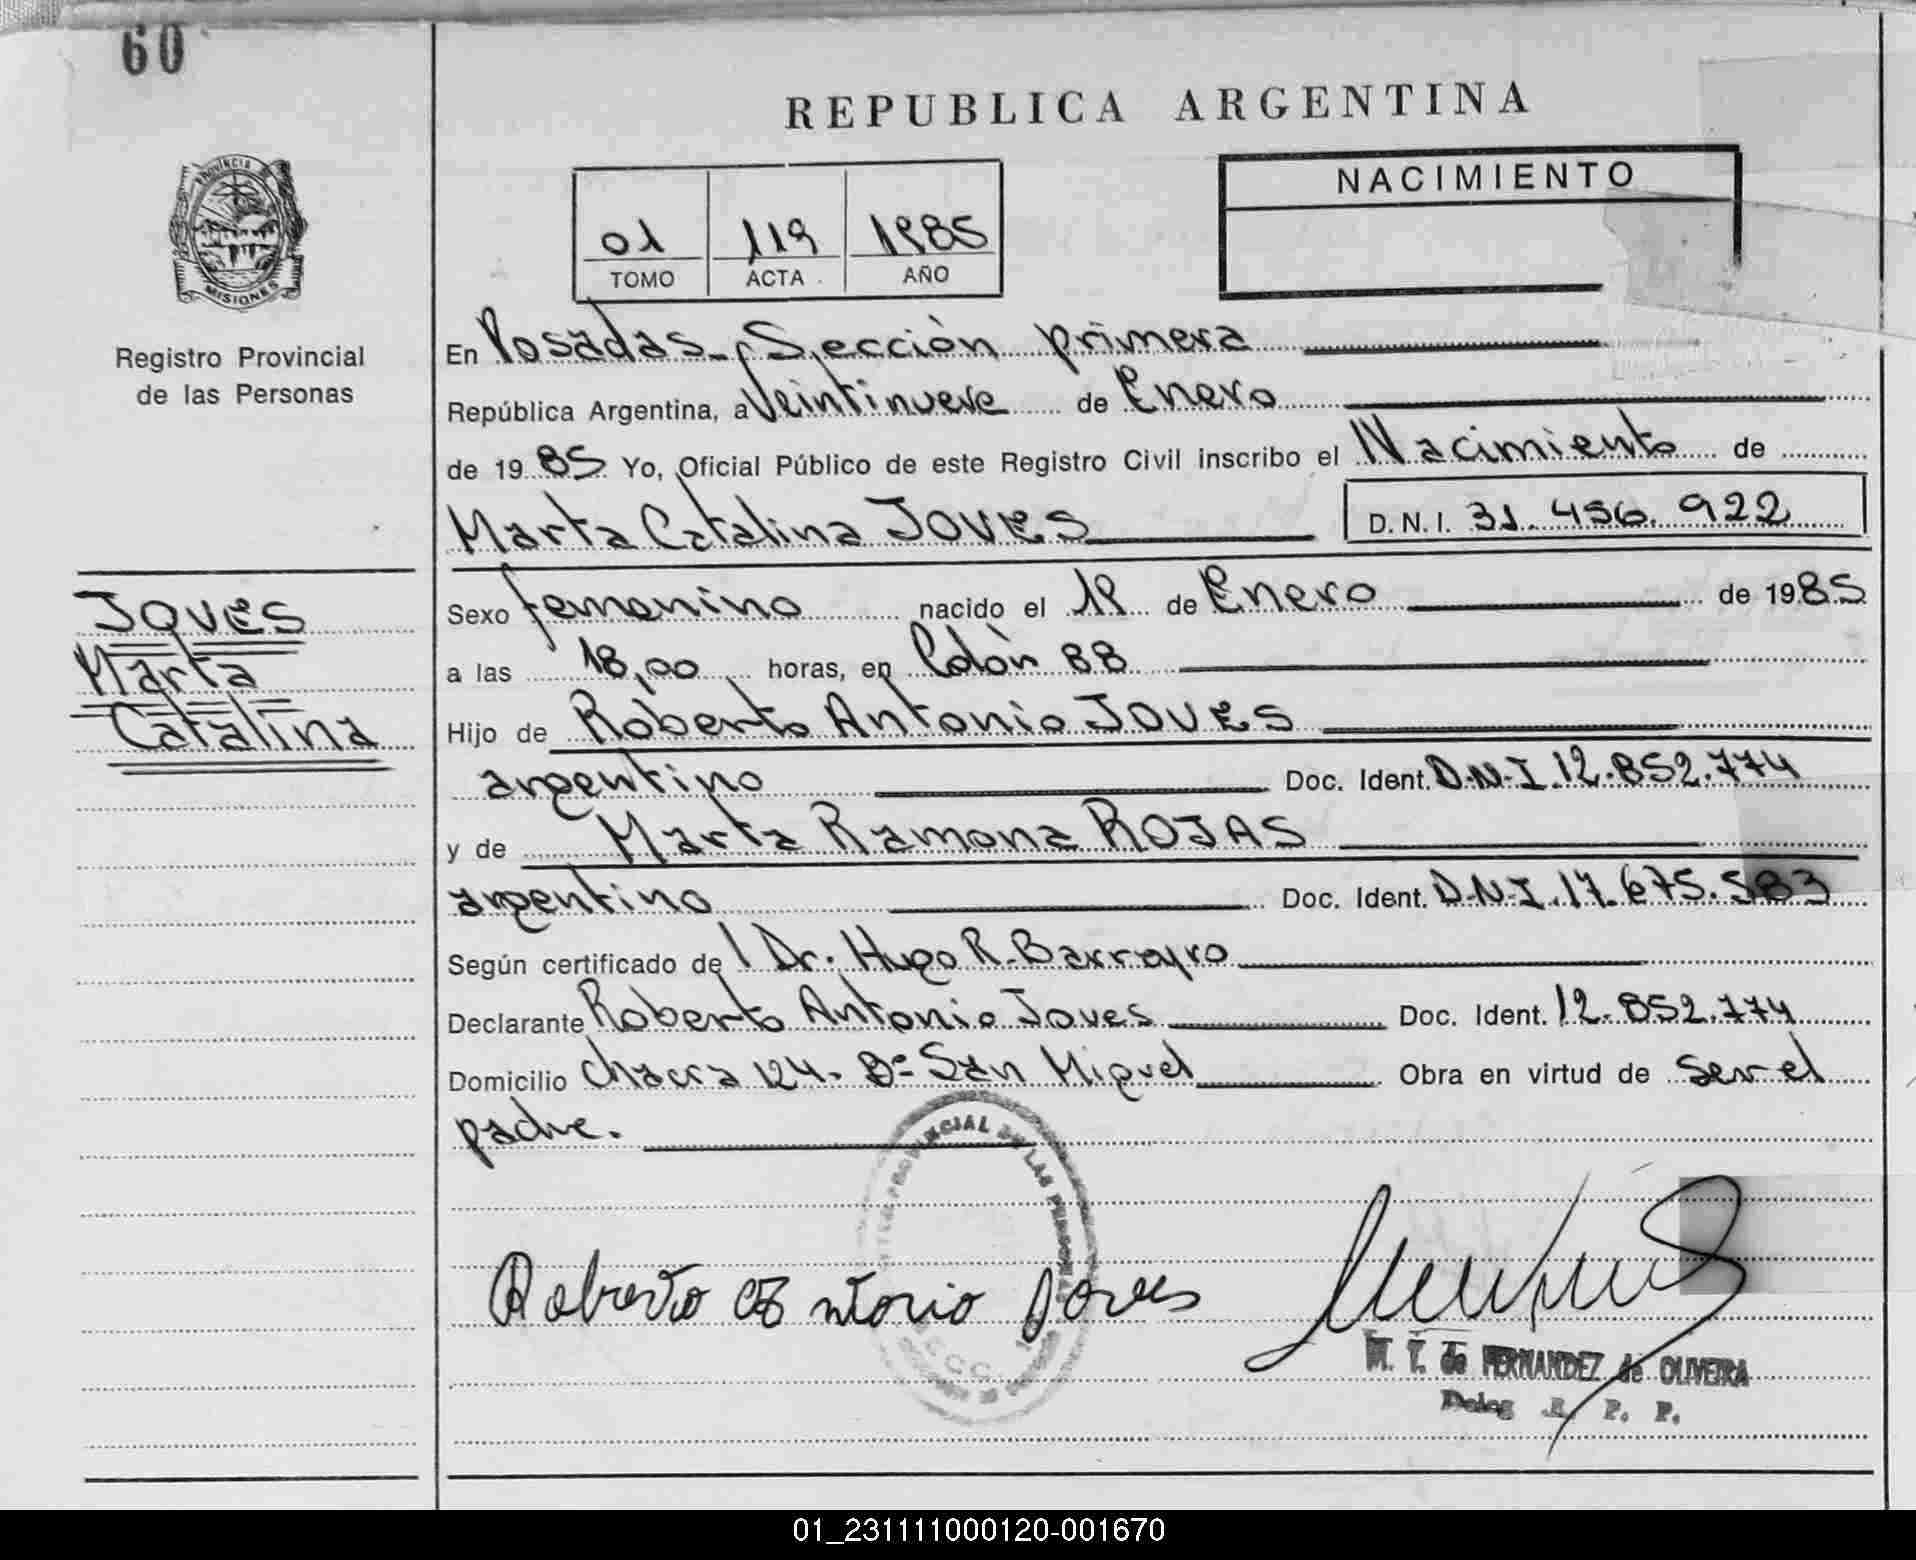 60
REPUBLICA ARGENTINA
PROVINCIA
MISIONES
Registro Provincial
de las Personas
NACIMIENTO
01 119 1985
TOMO ACTA AÑO
En Posadas - Sección primera
República Argentina, a Veintinueve de Enero
de 1985 Yo, Oficial Público de este Registro Civil inscribo el Nacimiento de
Marta Catalina JOVES D.N.I. 31.456.922
JOVES
Marta
Catalina
Sexo femenino nacido el de Enero de 1985
a las 18,00 horas, en Colón 88
Hijo de Roberto Antonio JOVES
argentino Doc. Ident. D.N.I. 12.852.774
y de Marta Ramona ROJAS
argentino Doc. Ident. D.N.I. 17.675.583
Según certificado de Dr. Hugo R. Barrayro
Declarante Roberto Antonio Joves Doc. Ident. 12.852.774
Domicilio Chacra 124 - Bº San Miguel Obra en virtud de ser el
padre.
PROVINCIAL DE LAS PERSONAS
Roberto Antonio Joves
M. T. de FERNANDEZ de OLIVEIRA
Deleg R. P. P.
01_231111000120-001670